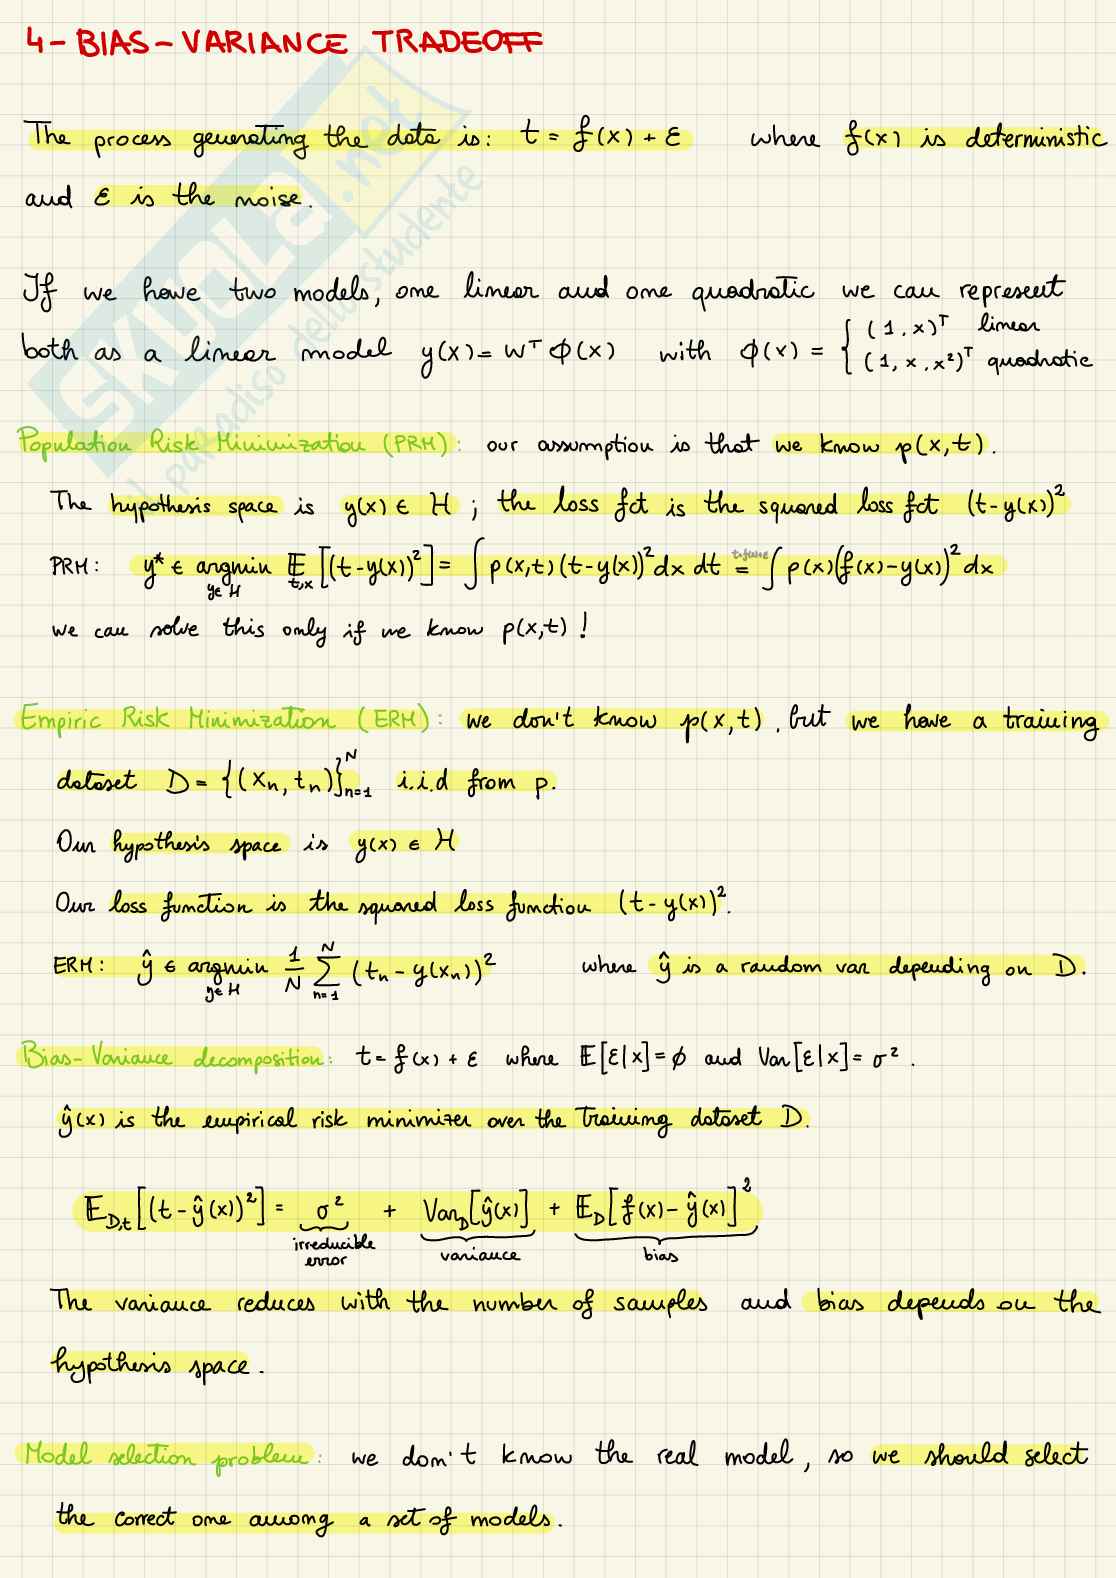 4- BIAS-VARIANCE TRADEOFF
The process generating the data is: t = f(x) + ε where f(x) is deterministic
and ε is the noise.
If we have two models, one linear and one quadratic we can represent
both as a linear model y(x) = wᵀ Φ(x) with Φ(x) = { (1, x)ᵀ linear
(1, x, x²)ᵀ quadratic
Population Risk Minimization (PRM): our assumption is that we know p(x,t).
The hypothesis space is y(x) ∈ H ; the loss fct is the squared loss fct (t-y(x))²
PRM: y* ∈ argmin_{y∈H} 𝔼_{t,x} [(t-y(x))²] = ∫ p(x,t) (t-y(x))² dx dt = ∫ p(x)(f(x)-y(x))² dx
we can solve this only if we know p(x,t) !
Empiric Risk Minimization (ERM): we don't know p(x,t), but we have a training
dataset D = {(xₙ, tₙ)}ₙ₌₁ᴺ i.i.d from p.
Our hypothesis space is y(x) ∈ H
Our loss function is the squared loss function (t-y(x))².
ERM: ŷ ∈ argmin_{y∈H} 1/N ∑ₙ₌₁ᴺ (tₙ - y(xₙ))² where ŷ is a random var depending on D.
Bias-Variance decomposition: t = f(x) + ε where 𝔼[ε|x] = ϕ and Var[ε|x] = σ².
ŷ(x) is the empirical risk minimizer over the training dataset D.
𝔼_{D,t} [(t-ŷ(x))²] = σ² + Var_D[ŷ(x)] + 𝔼_D[f(x)-ŷ(x)]²
irreducible error variance bias
The variance reduces with the number of samples and bias depends on the
hypothesis space.
Model selection problem: we don't know the real model, so we should select
the correct one among a set of models.
SKUOLA.net
il paradiso dello studente